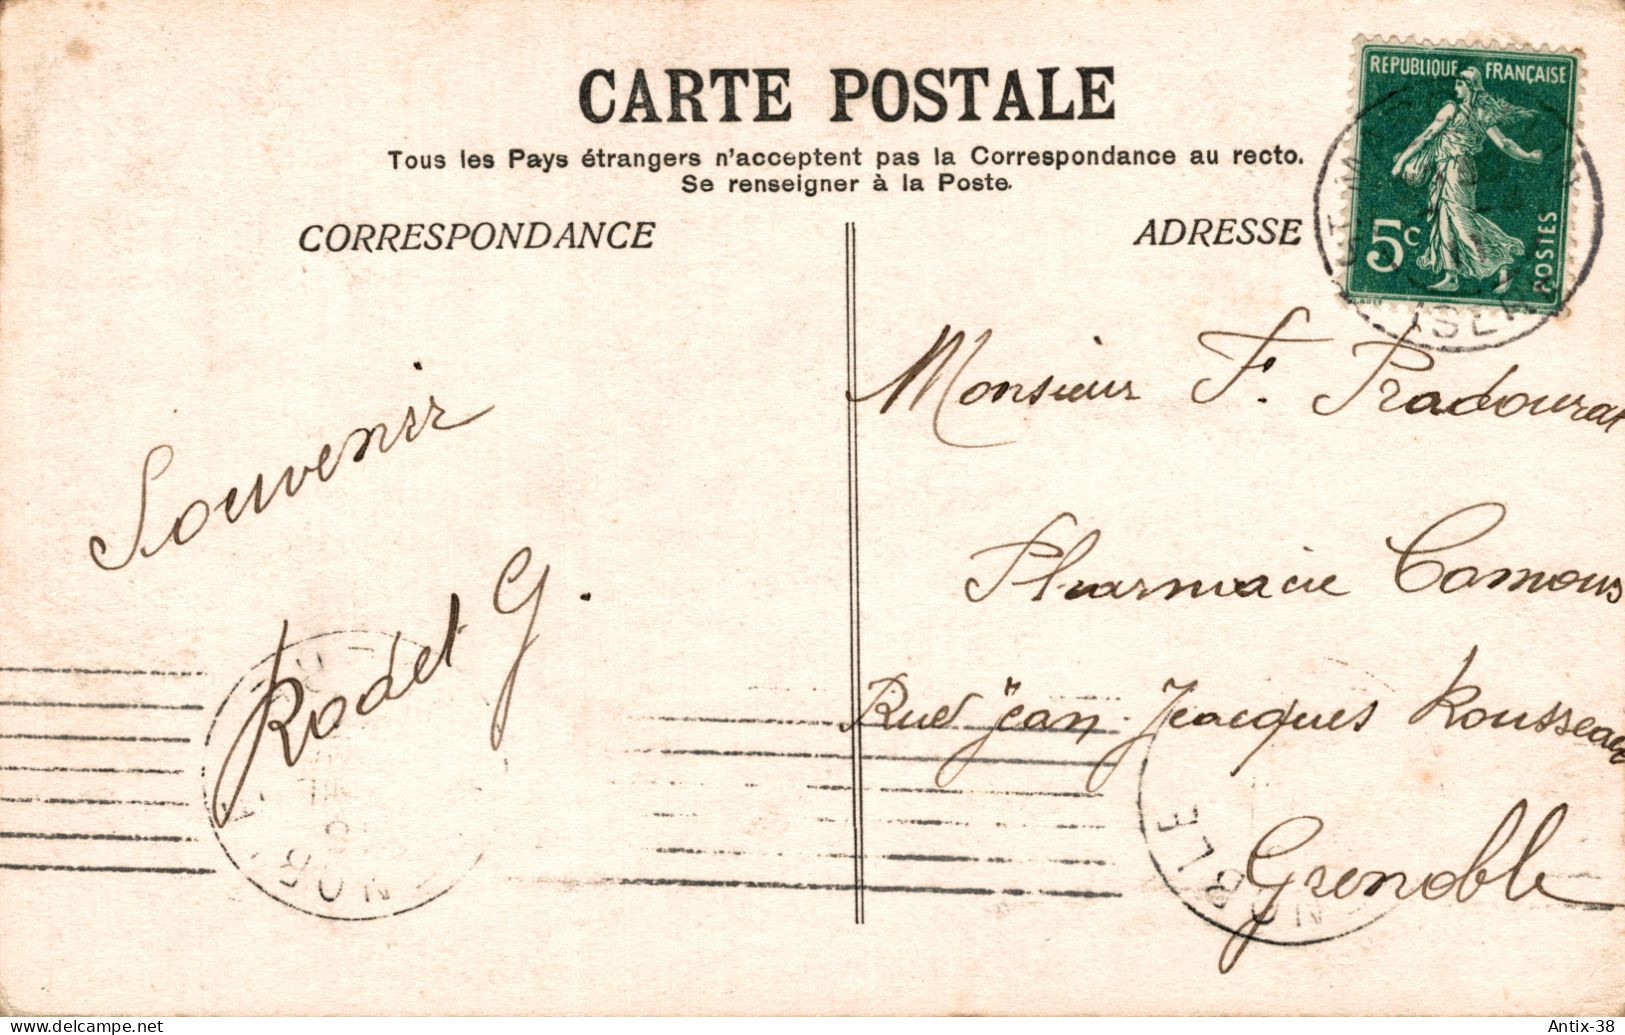 CARTE POSTALE
Tous les Pays étrangers n'acceptent pas la Correspondance au recto.
Se renseigner à la Poste.
CORRESPONDANCE
ADRESSE
REPUBLIQUE FRANÇAISE
5c
POSTES
ISERE
Souvenir
Rodet G.
Monsieur F. Pradourat
Pharmacie Camous
Rue Jean-Jacques Rousseau
Grenoble
delcampe.net
Antix-38